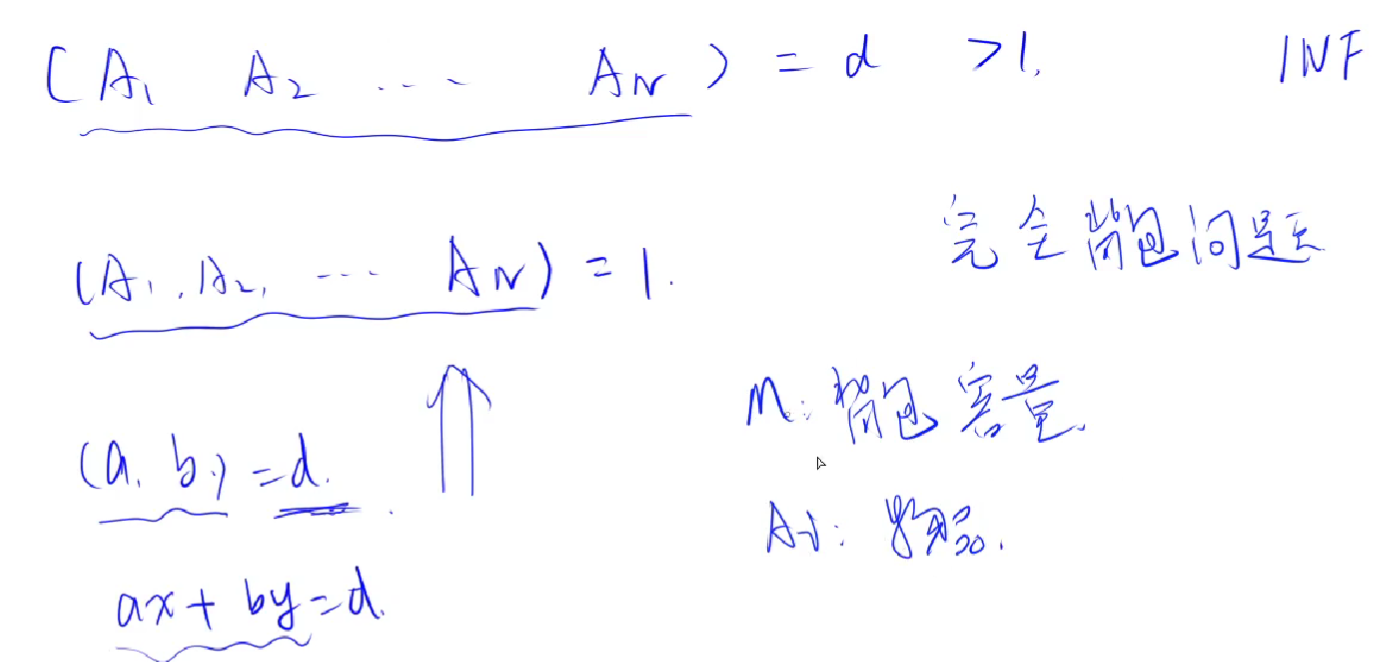 (A1 A2 ... AN) = d >1. INF
完全背包问题
(A1, A2, ... AN) = 1.
M: 背包容量.
(a, b) = d.
Ai: 物品.
ax + by = d.